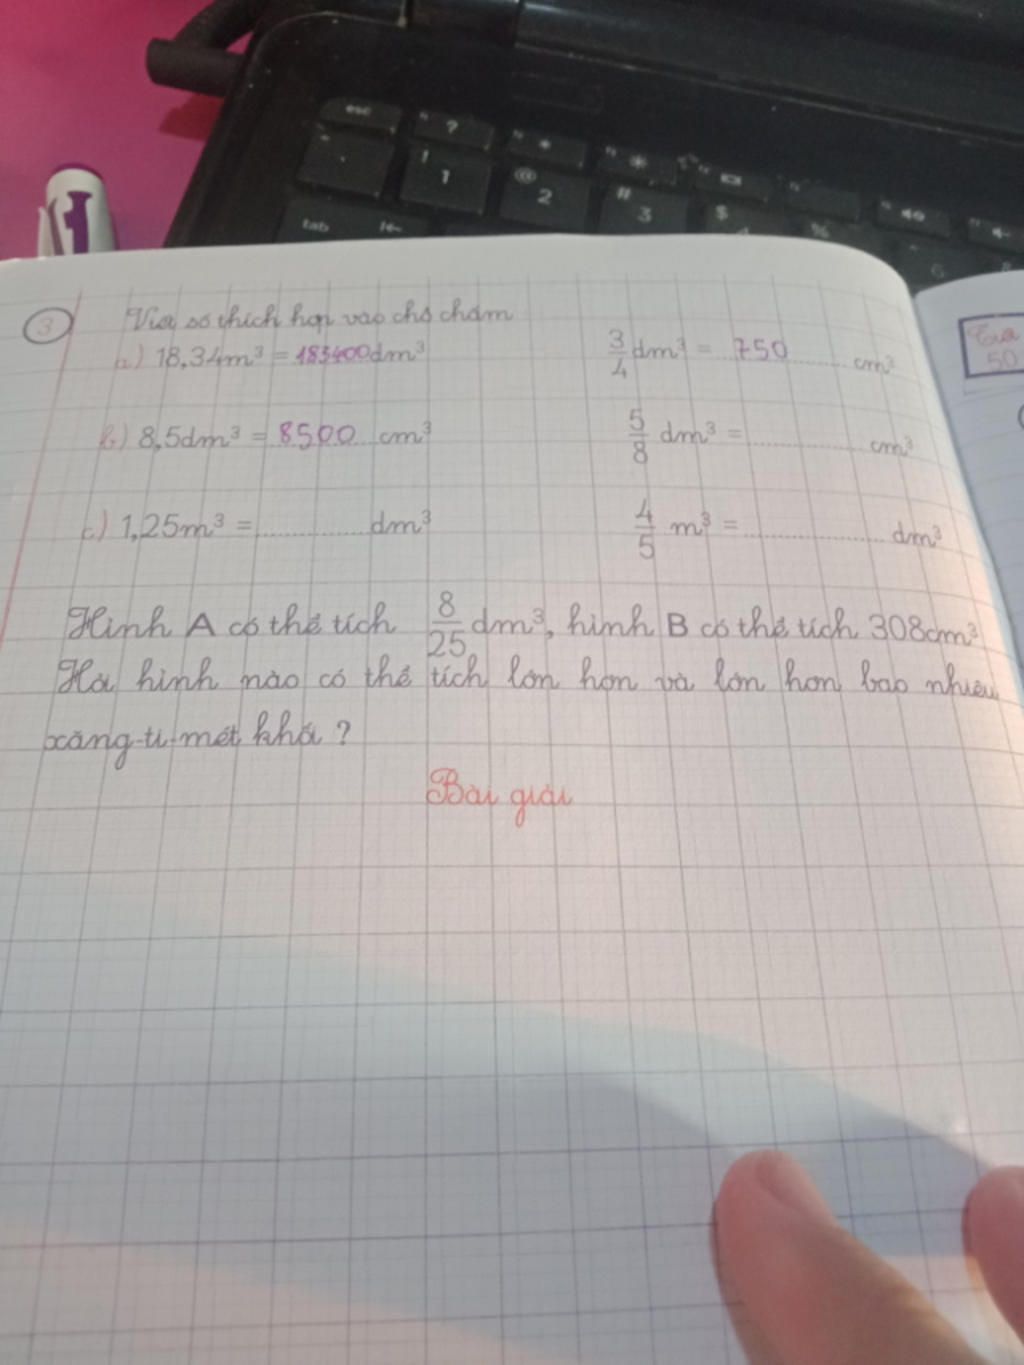 esc ?
! 1 @ 2 # 3 $ 4 % 6
tab
3 Viết số thích hợp vào chỗ chấm
a) 18,34m³ = 183400dm³ 3/4 dm³ = 750 cm³
b) 8,5dm³ = 8500 cm³ 5/8 dm³ = ............ cm³
c) 1,25m³ = ............ dm³ 4/5 m³ = ............ dm³
Hình A có thể tích 8/25 dm³, hình B có thể tích 308cm³
Hỏi hình nào có thể tích lớn hơn và lớn hơn bao nhiêu
xăng-ti-mét khối ?
Bài giải
50